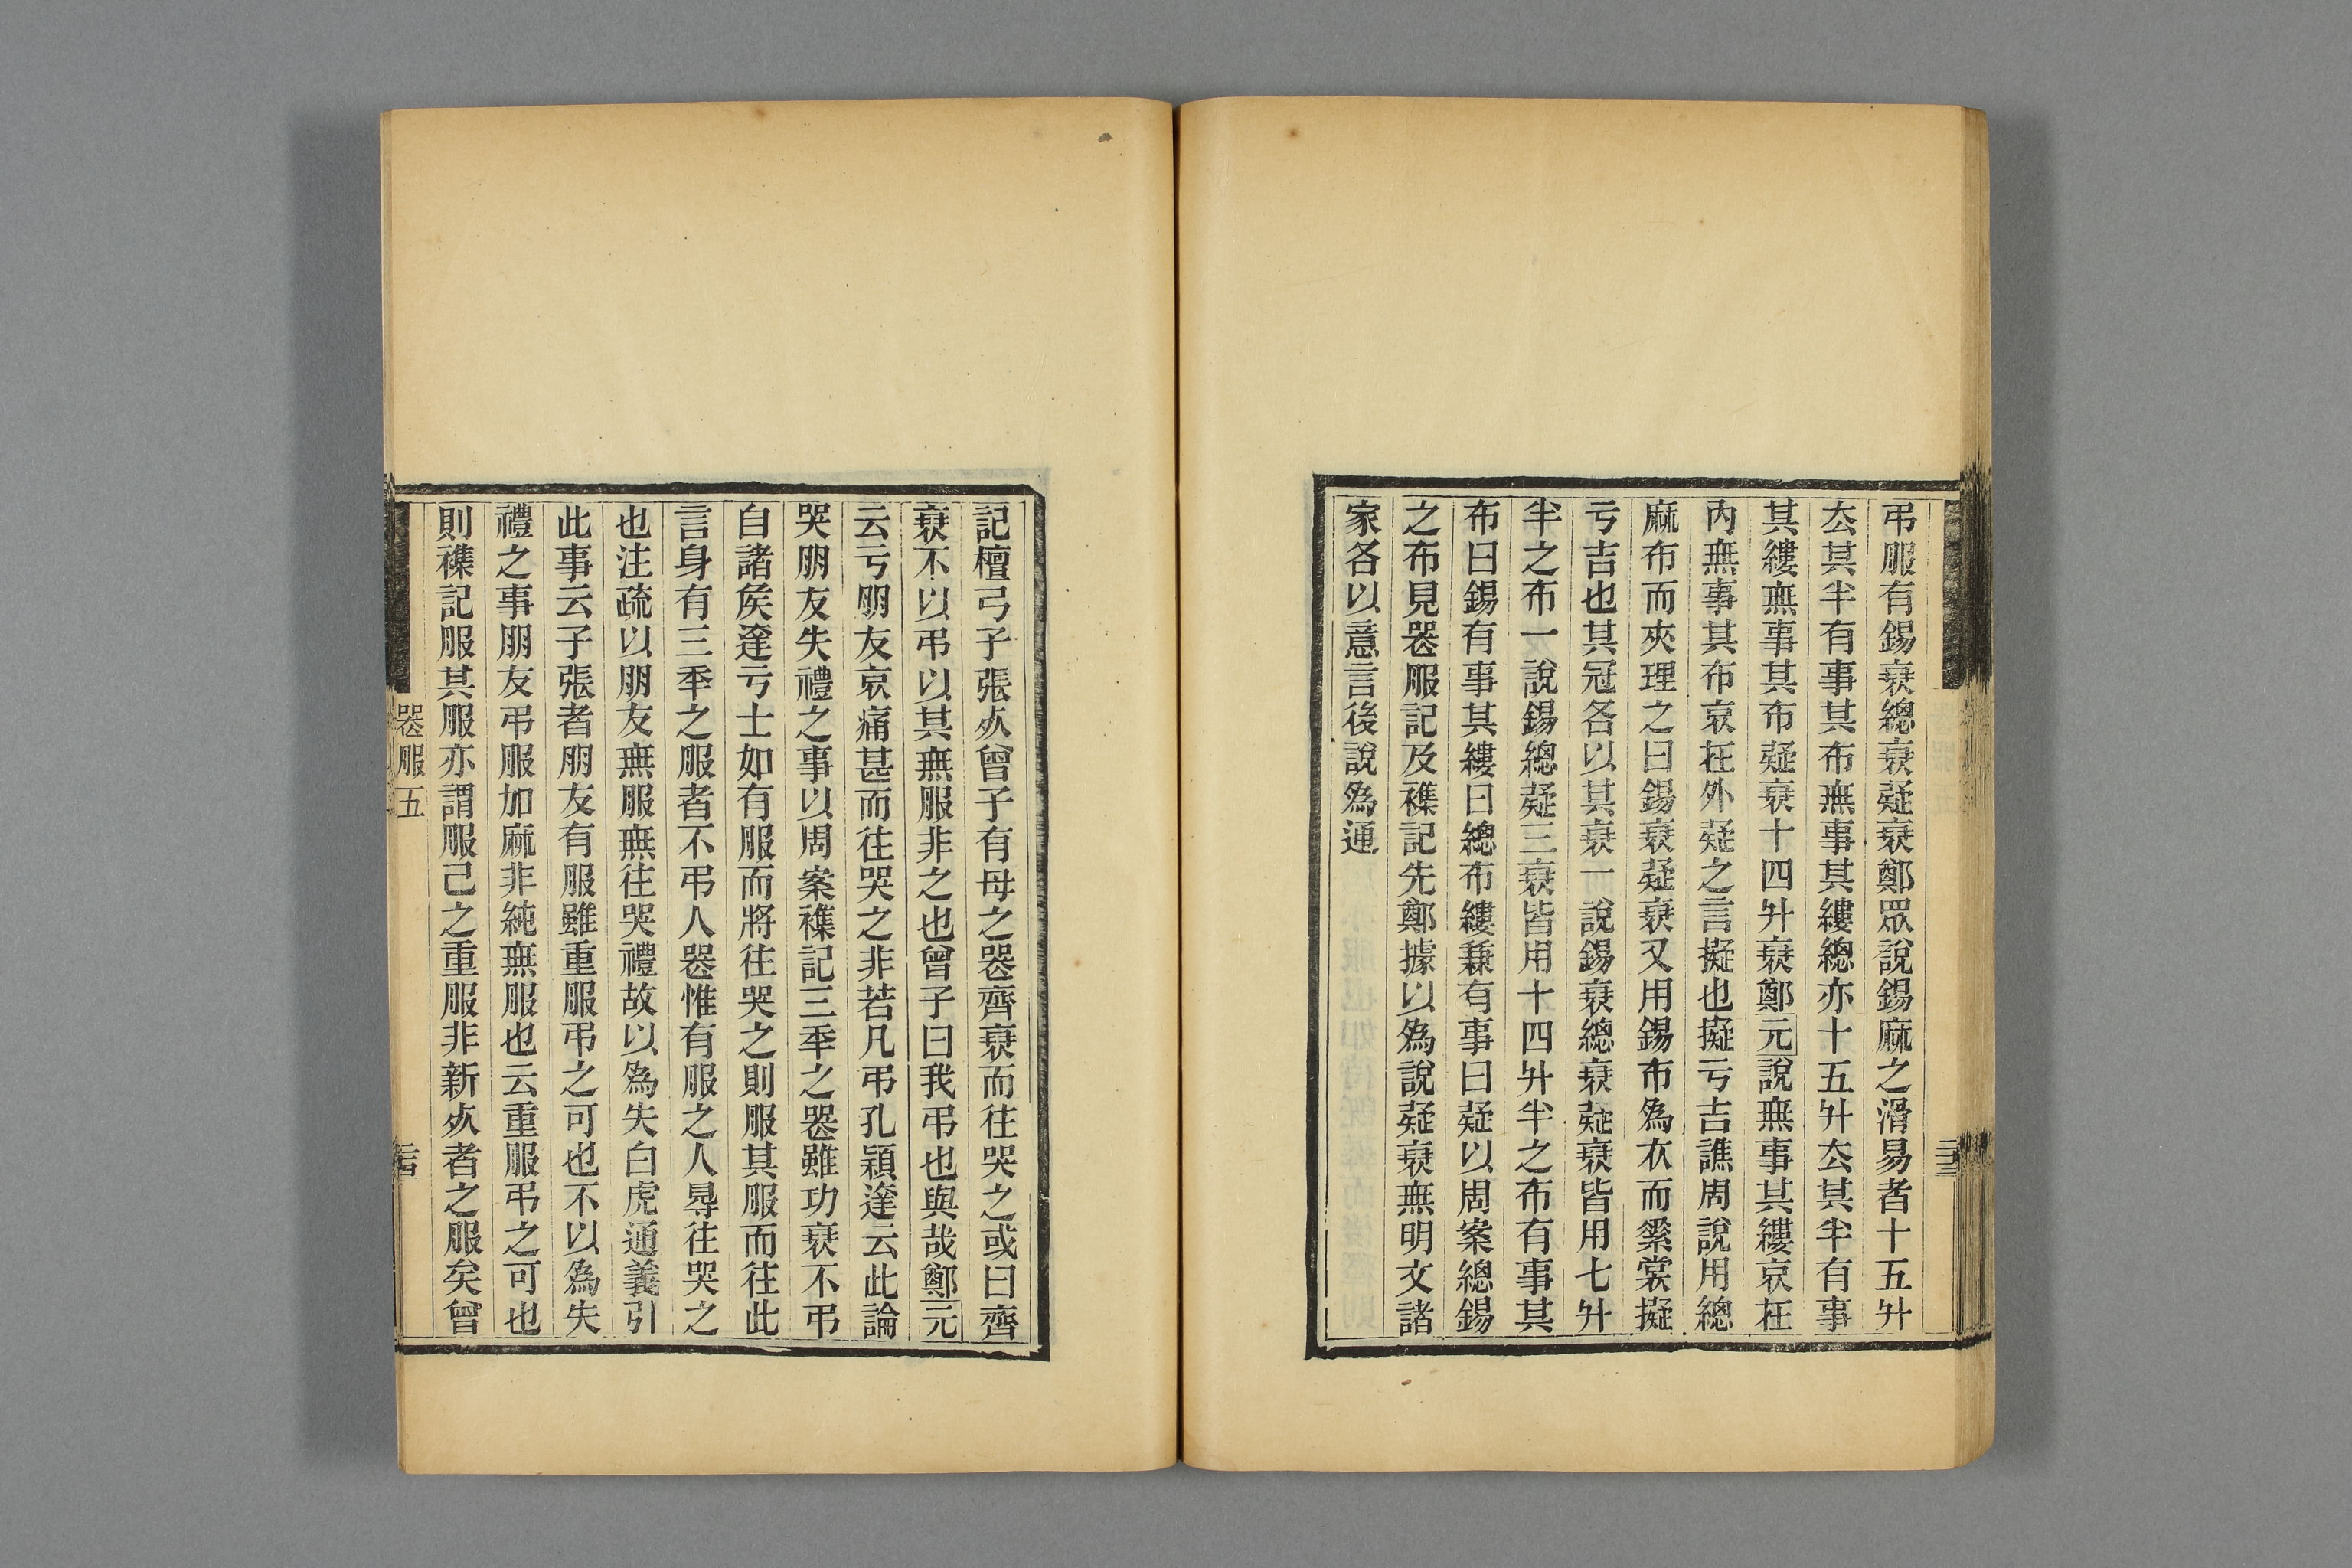 弔服有錫衰緦衰疑衰鄭眾說錫麻之滑易者十五升
去其半有事其布無事其縷緦亦十五升去其半有事
其縷無事其布疑衰十四升衰鄭元說無事其縷哀在
內無事其布哀在外疑之言擬也擬亏吉譙周說用緦
麻布而夾理之曰錫衰疑衰又用錫布為衣而素裳擬
亏吉也其冠各以其衰一說錫衰緦衰疑衰皆用七升
半之布一說錫緦疑三衰皆用十四升半之布有事其
布曰錫有事其縷曰緦布縷兼有事曰疑以周案緦錫
之布見喪服記及襍記先鄭據以為說疑衰無明文諸
家各以意言後說為通
二十三
記檀弓子張㱙曾子有母之喪齊衰而往哭之或曰齊
衰不以弔以其無服非之也曾子曰我弔也與哉鄭元
云亏朋友哀痛甚而往哭之非若凡弔孔穎達云此論
哭朋友失禮之事以周案襍記三年之喪雖功衰不弔
自諸侯達亏士如有服而將往哭之則服其服而往此
言身有三年之服者不弔人喪惟有服之人㝵往哭之
也注疏以朋友無服無往哭禮故以為失白虎通義引
此事云子張者朋友有服雖重服弔之可也不以為失
禮之事朋友弔服加麻非純無服也云重服弔之可也
則襍記服其服亦謂服己之重服非新㱙者之服矣曾
喪服五
二十四